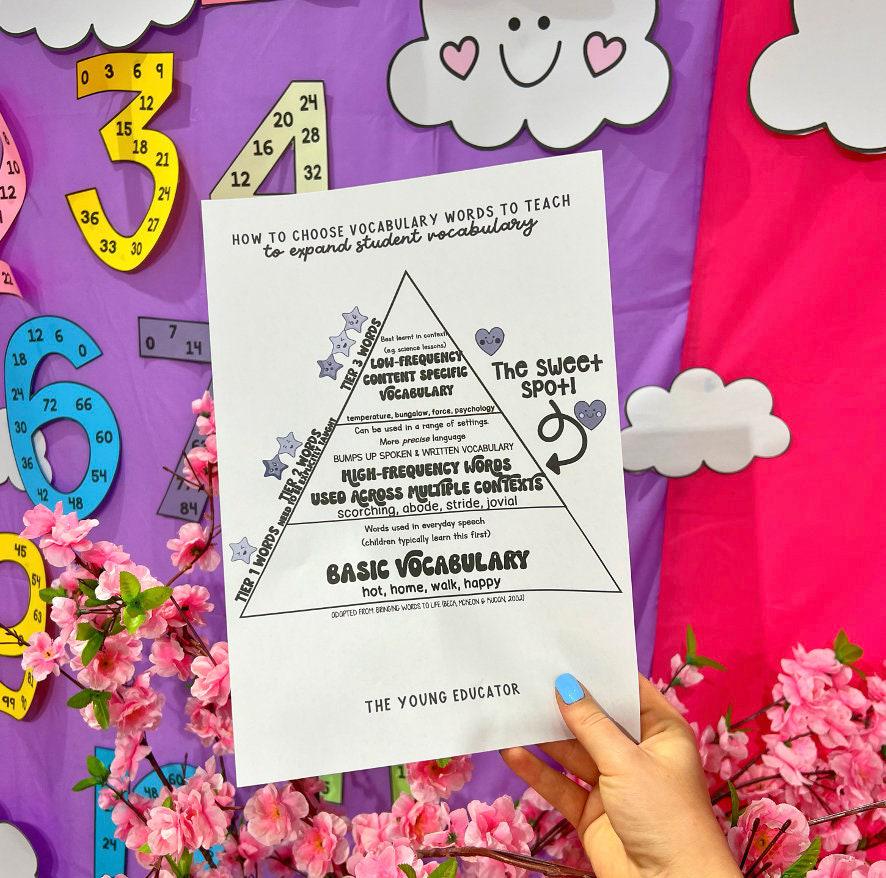 0 3 6 9
12
15
18
21
24
27
30
33
36
24
20
28
16
32
12
10
12
22
12 6 0
18
24 72 66
30 60
36 54
42 48
0 7 14
84
45
54
63
99 90
48 60
24
HOW TO CHOOSE VOCABULARY WORDS TO TEACH
to expand student vocabulary
TIER 3 WORDS
Best learnt in context
(e.g. science lessons)
LOW-FREQUENCY
CONTENT SPECIFIC
VOCABULARY
temperature, bungalow, force, psychology
The sweet
spot!
TIER 2 WORDS
NEED TO BE EXPLICITLY TAUGHT
Can be used in a range of settings.
More precise language
BUMPS UP SPOKEN & WRITTEN VOCABULARY
HIGH-FREQUENCY WORDS
USED ACROSS MULTIPLE CONTEXTS
scorching, abode, stride, jovial
TIER 1 WORDS
Words used in everyday speech
(children typically learn this first)
BASIC VOCABULARY
hot, home, walk, happy
ADOPTED FROM: BRINGING WORDS TO LIFE (BECK, MCKEON & KUCAN, 2002)
THE YOUNG EDUCATOR